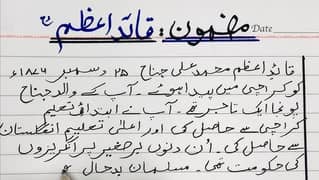 مضمون : قائد اعظم Date
قائد اعظم محمد علی جناح ۲۵ دسمبر ۱۸۷۶ء
کو کراچی میں پیدا ہوئے۔ آپ کے والد جناح
پونجا ایک تاجر تھے۔ آپ نے ابتدائی تعلیم
کراچی سے حاصل کی اور اعلیٰ تعلیم انگلستان
سے حاصل کی۔ اُن دنوں برصغیر پر انگریزوں
کی حکومت تھی۔ مسلمان بدحال